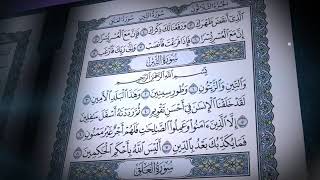 ٱلَّذِىٓ أَنقَضَ ظَهْرَكَ ٣ وَرَفَعْنَا لَكَ ذِكْرَكَ ٤ فَإِنَّ مَعَ ٱلْعُسْرِ يُسْرًا ٥
إِنَّ مَعَ ٱلْعُسْرِ يُسْرًا ٦ فَإِذَا فَرَغْتَ فَٱنصَبْ ٧ وَإِلَىٰ رَبِّكَ فَٱرْغَب ٨
سُورَةُ التِّينِ
بِسْمِ ٱللَّهِ ٱلرَّحْمَٰنِ ٱلرَّحِيمِ
وَٱلتِّينِ وَٱلزَّيْتُونِ ١ وَطُورِ سِينِينَ ٢ وَهَٰذَا ٱلْبَلَدِ ٱلْأَمِينِ ٣
لَقَدْ خَلَقْنَا ٱلْإِنسَٰنَ فِىٓ أَحْسَنِ تَقْوِيمٍ ٤ ثُمَّ رَدَدْنَٰهُ أَسْفَلَ سَٰفِلِينَ
٥ إِلَّا ٱلَّذِينَ ءَامَنُوا۟ وَعَمِلُوا۟ ٱلصَّٰلِحَٰتِ فَلَهُمْ أَجْرٌ غَيْرُ مَمْنُونٍ ٦
فَمَا يُكَذِّبُكَ بَعْدُ بِٱلدِّينِ ٧ أَلَيْسَ ٱللَّهُ بِأَحْكَمِ ٱلْحَٰكِمِينَ ٨
سُورَةُ العَلَقِ